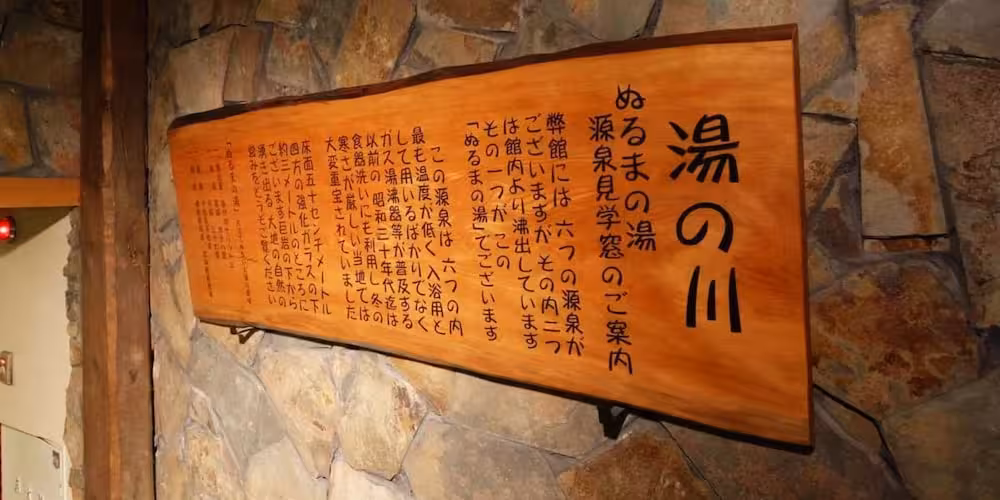 湯の川
ぬるまの湯
源泉見学窓のご案内
弊館には 六つの源泉が
ございますが その内二つ
は館内より沸出しています
その一つが この
「ぬるまの湯」でございます
この源泉は 六つの内
最も温度が低く 入浴用と
して用いるばかりでなく
ガス湯沸器等が普及する
以前の 昭和三十年代迄は
食器洗いにも利用し 冬の
寒さが厳しい当地では
大変重宝されていました
床面五十センチメートル
四方の強化ガラスの下
約三メートルのところに
ございます 巨岩の下から
湧き出る 大地の自然の
営みをどうぞご覧ください